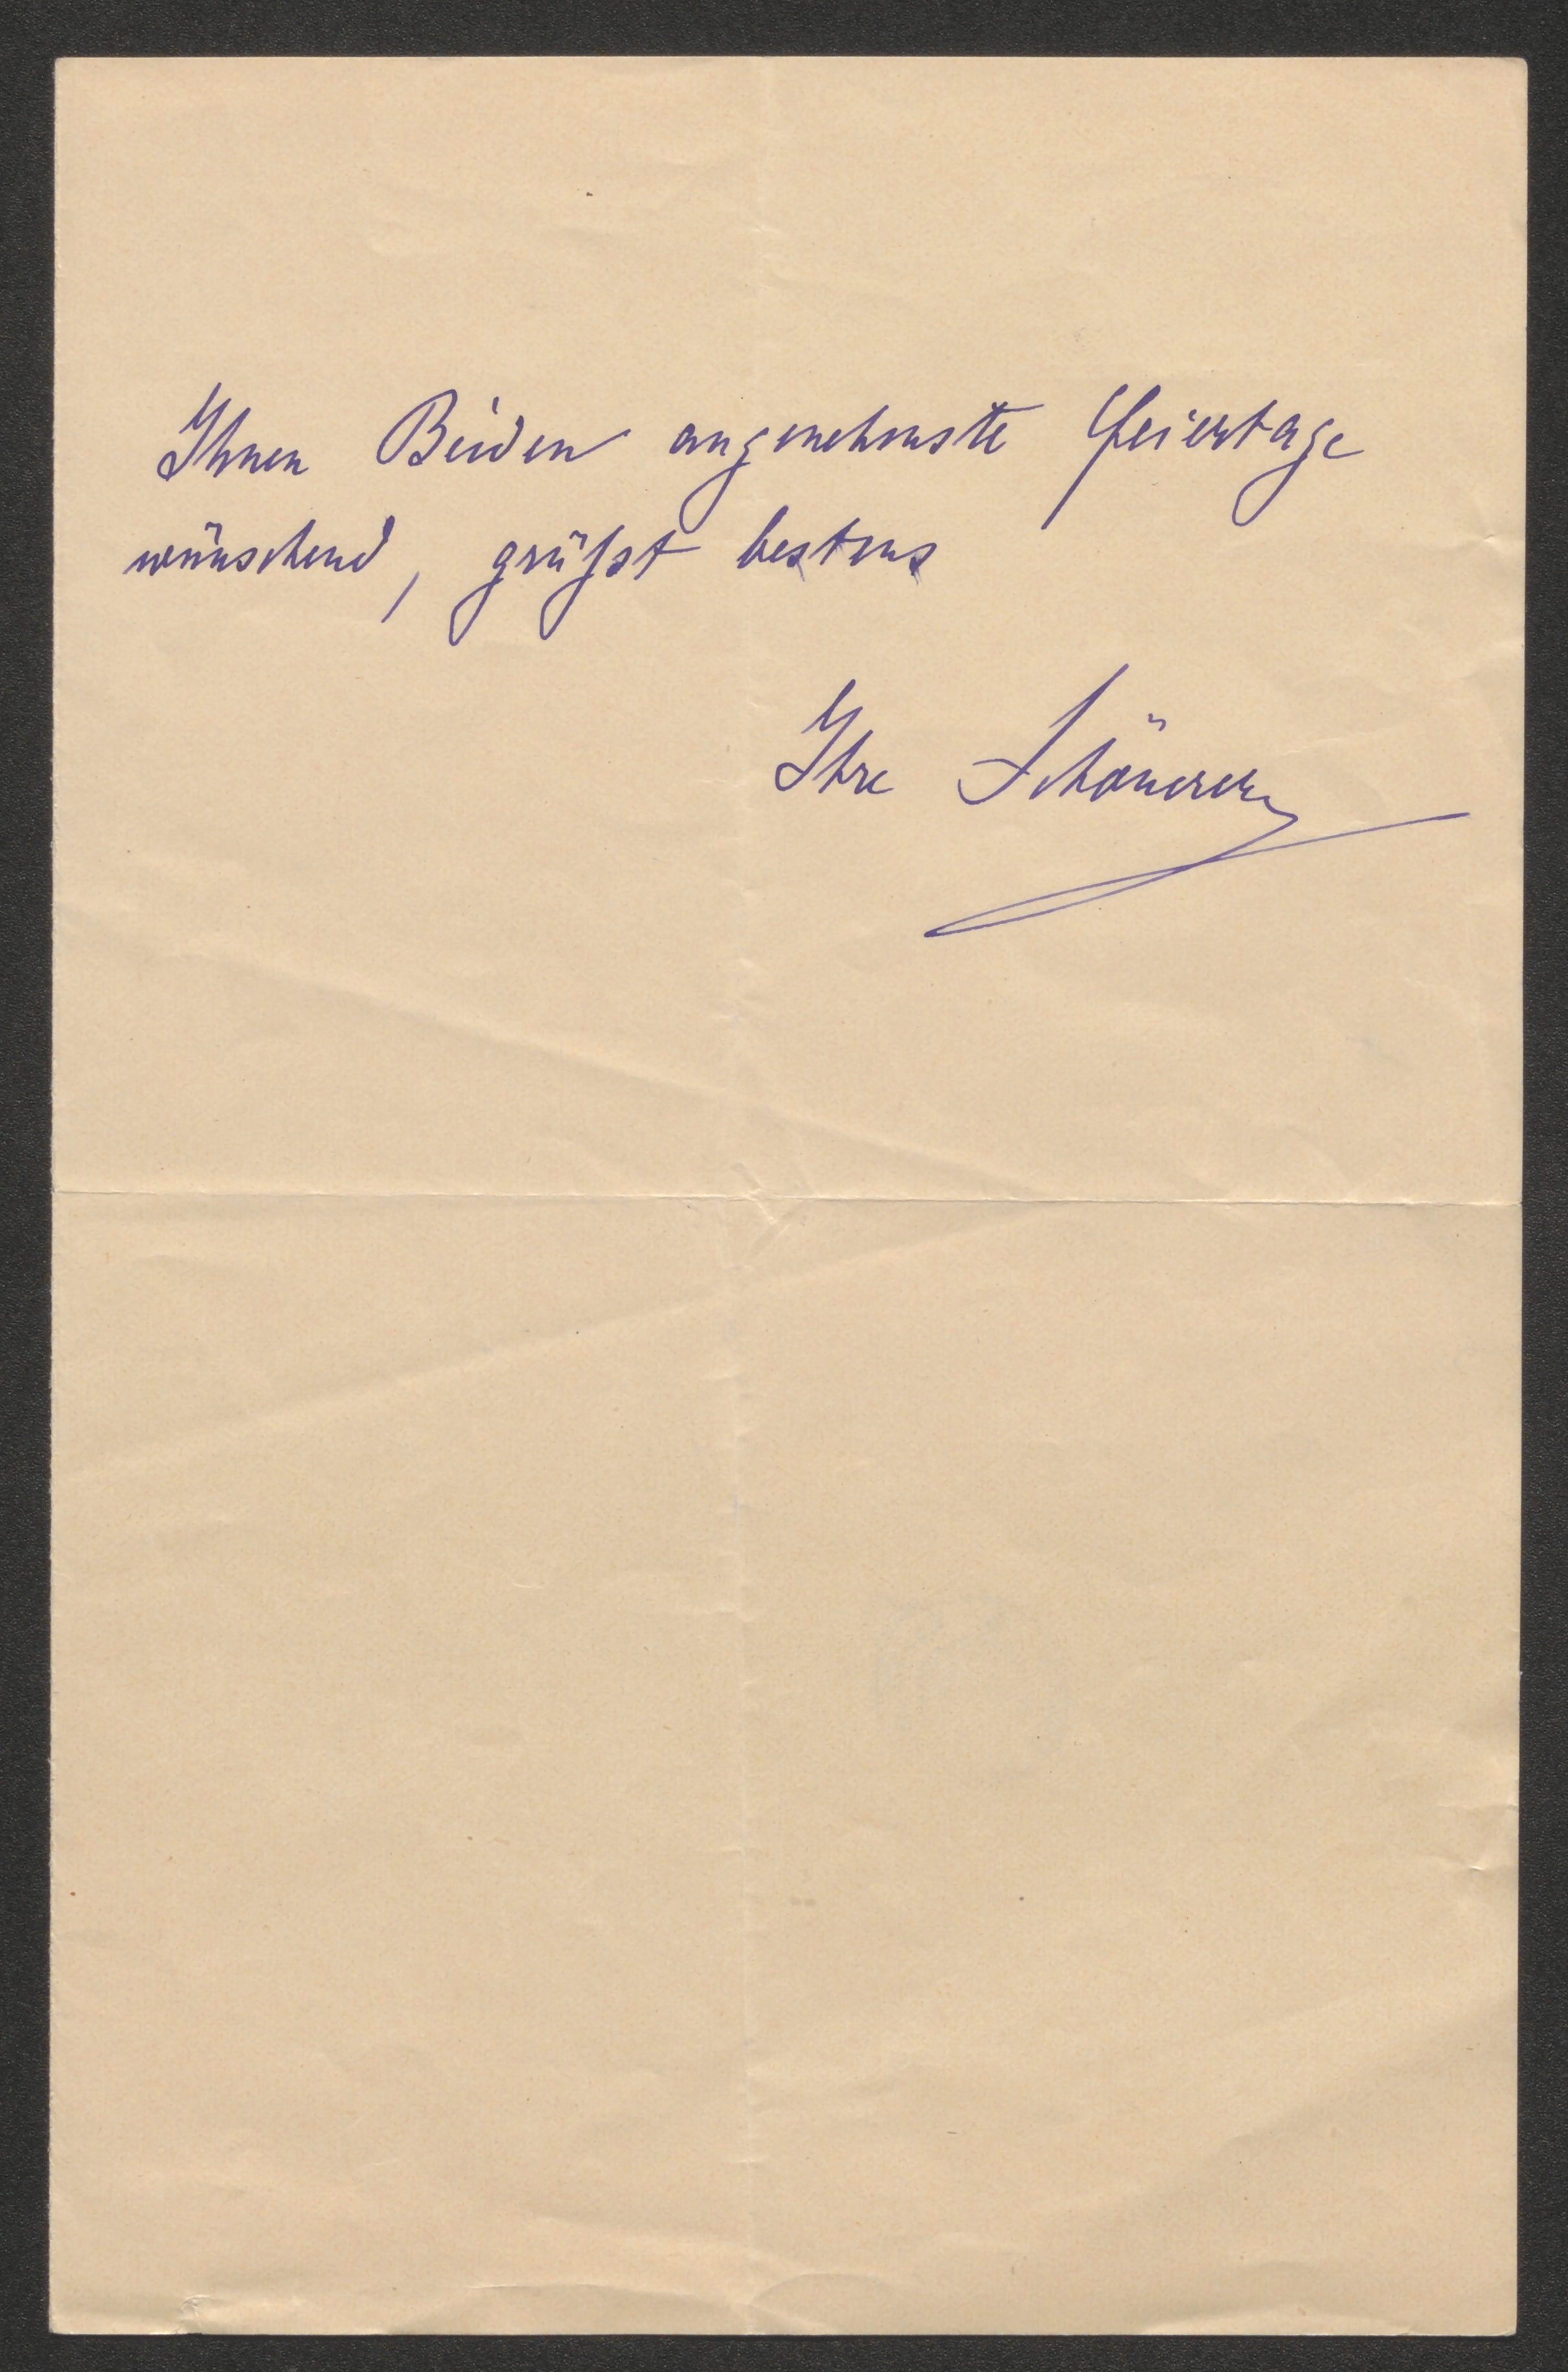 Ihnen Beiden angenehmste Feiertage
wünschend, grüßt bestens
Ihre Schönerer